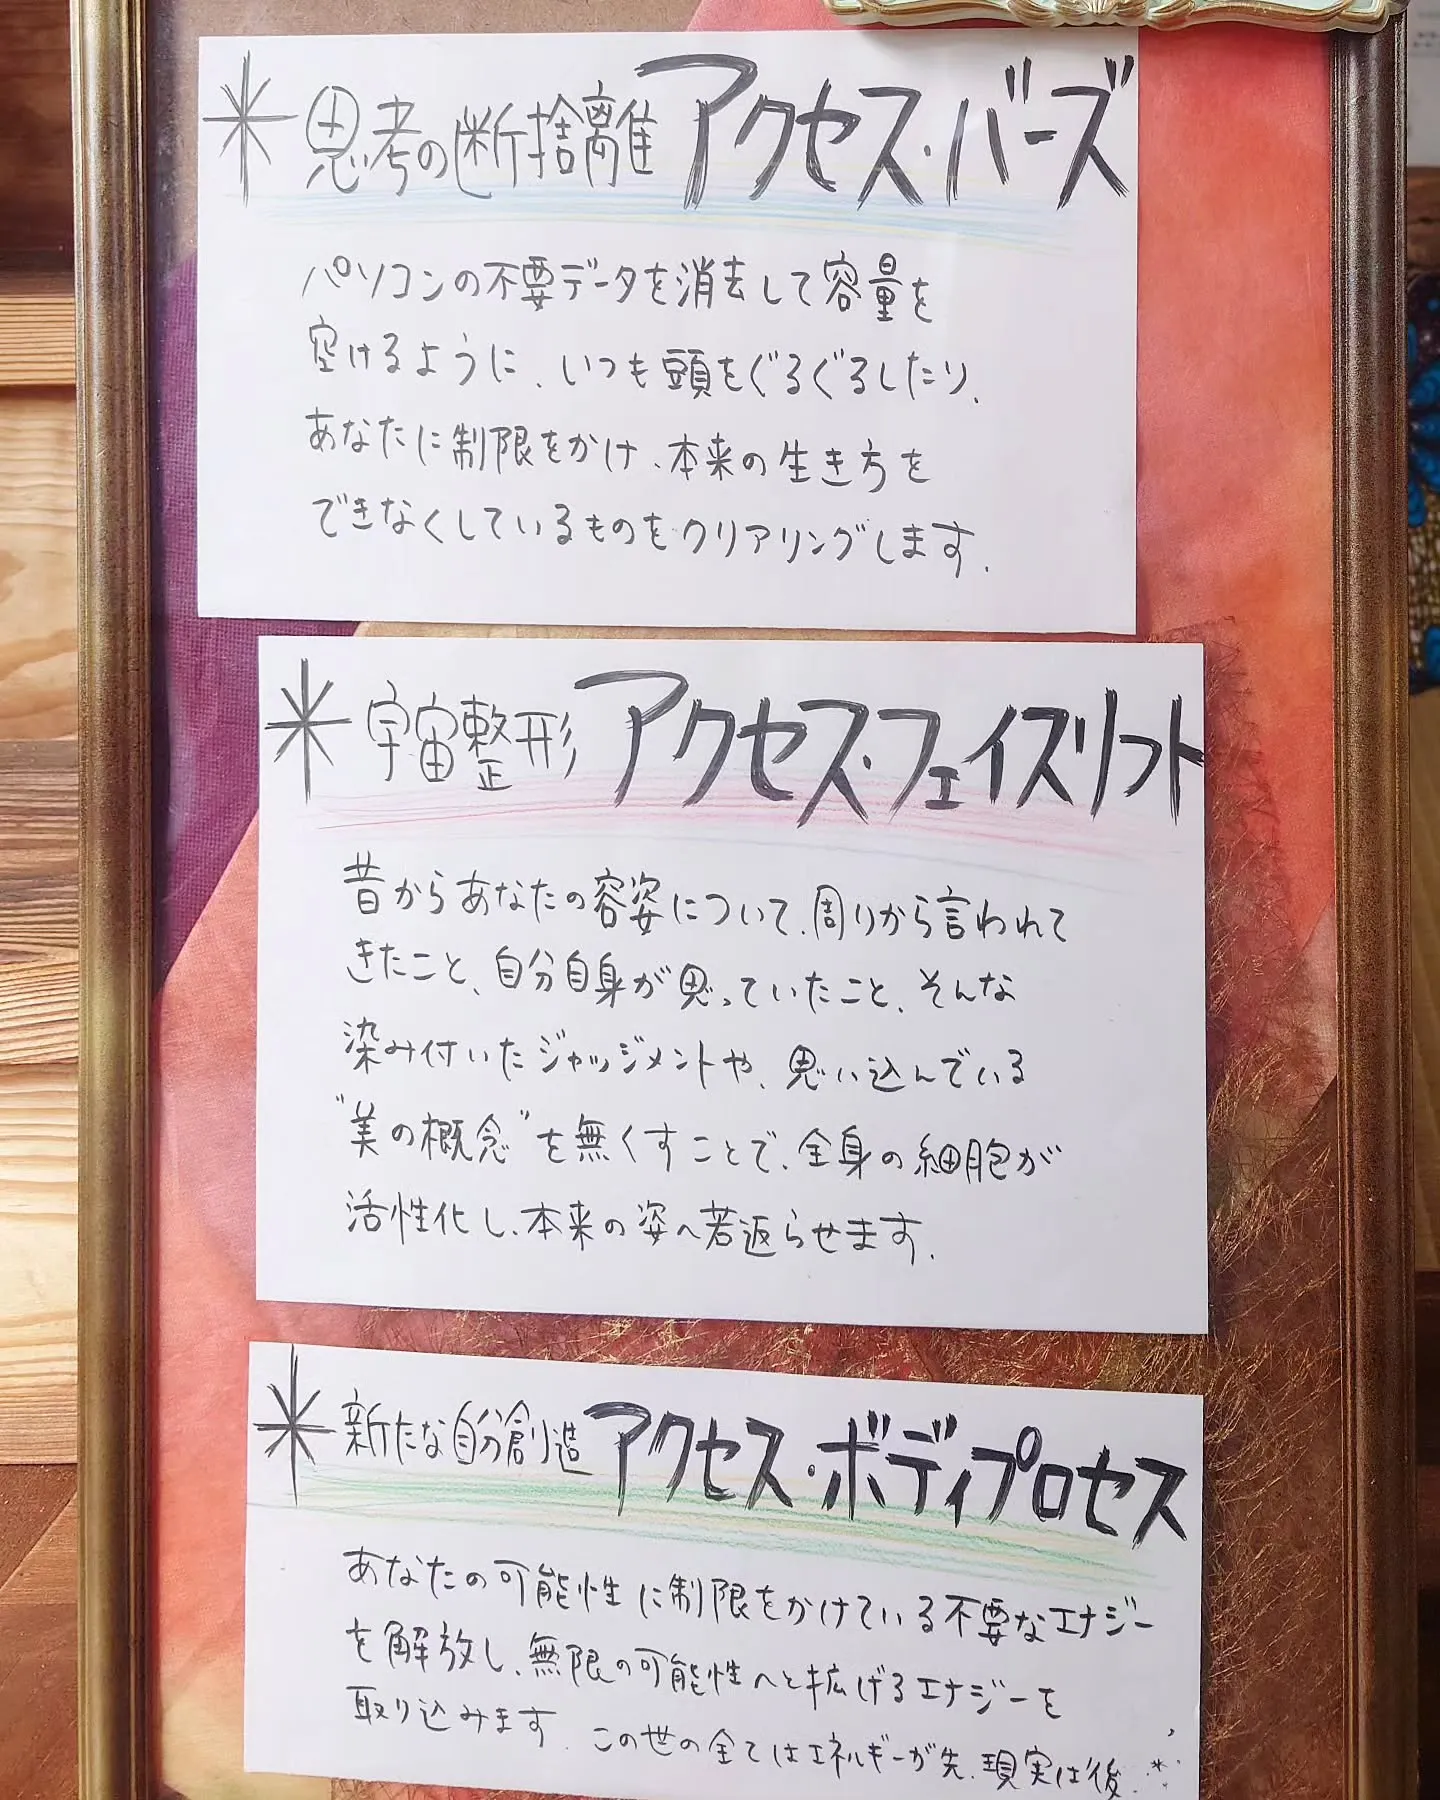 思考の断捨離 アクセス・バーズ
パソコンの不要データを消去して容量を
空けるように、いつも頭をぐるぐるしたり、
あなたに制限をかけ、本来の生き方を
できなくしているものをクリアリングします。
宇宙整形 アクセス・フェイスリフト
昔からあなたの容姿について、周りから言われて
きたこと、自分自身が思っていたこと、そんな
染み付いたジャッジメントや、思い込んでいる
"美の概念"を無くすことで、全身の細胞が
活性化し、本来の姿へ若返らせます。
新たな自分創造 アクセス・ボディプロセス
あなたの可能性に制限をかけている不要なエナジー
を解放し、無限の可能性へと拡げるエナジーを
取り込みます。この世の全てはエネルギーが先、現実は後。